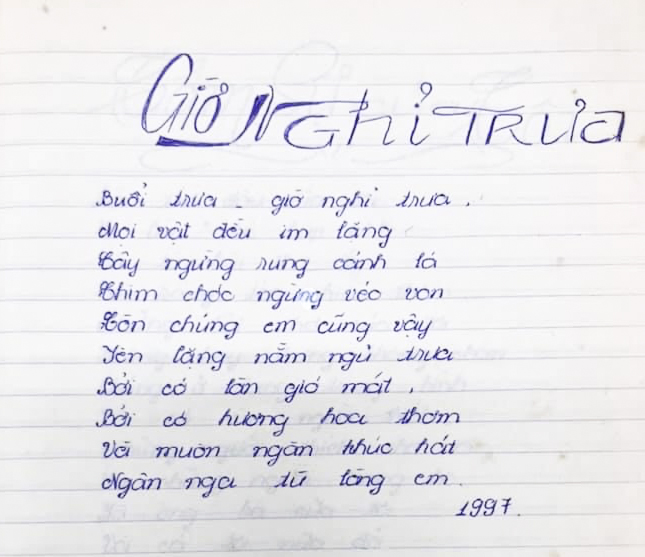 Giờ Nghỉ Trưa
Buổi trưa - giờ nghỉ trưa.
Mọi vật đều im lặng
Cây ngừng rung cánh lá
Chim chóc ngừng véo von
Còn chúng em cũng vậy
Yên lặng nằm ngủ trưa
Bởi có làn gió mát.
Bởi có hương hoa thơm
Và muôn ngàn khúc hát
Ngân nga từ lòng em.
1997.